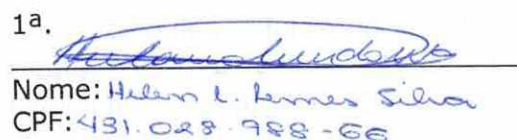 1ª.
Nome: Helen L. Lemes Silva
CPF: 431.028.988-66